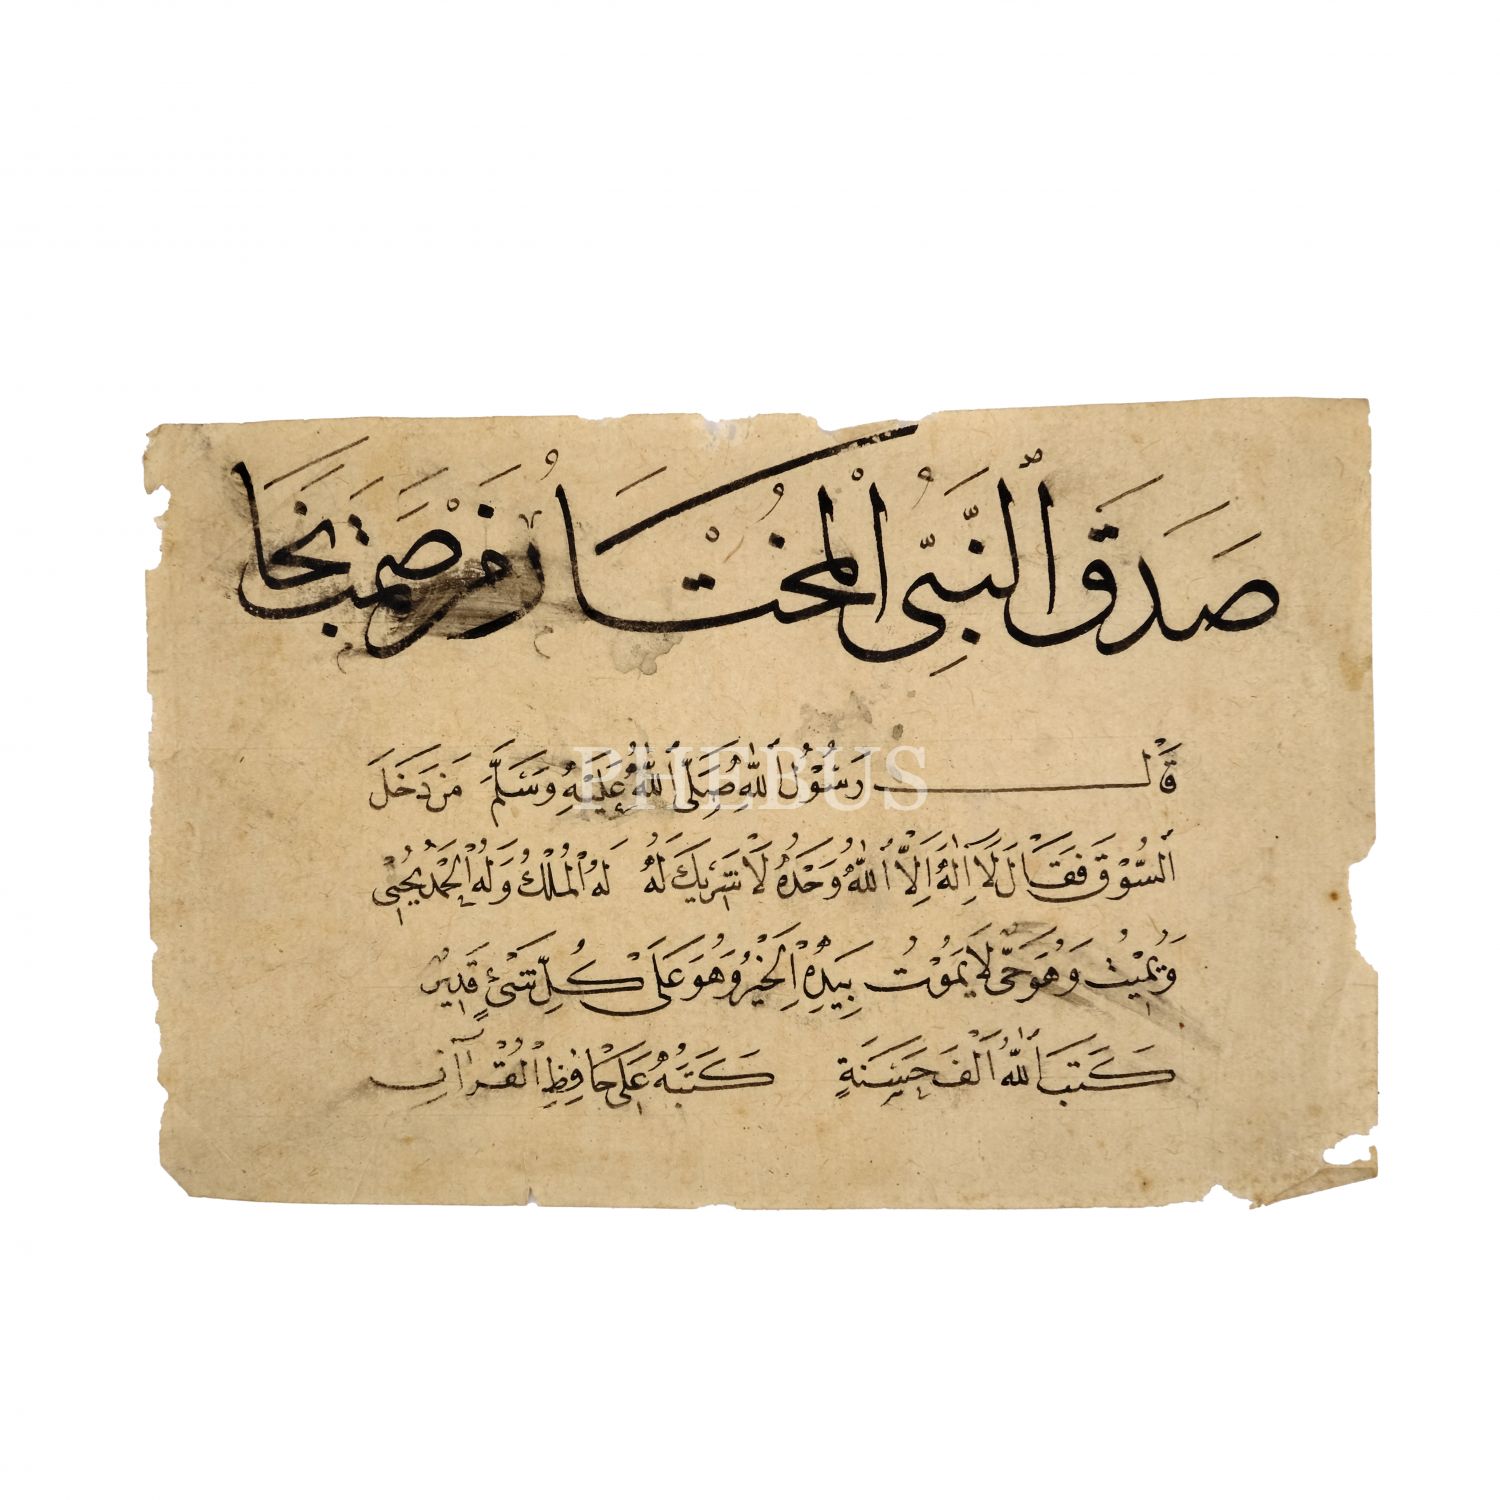 صَدَقَ ٱلنَّبِيُّ ٱلْمُخْتَارُ مَنْ صَمَتَ نَجَا
قَالَ رَسُوْلُ ٱللّٰهِ صَلَّى ٱللّٰهُ عَلَيْهِ وَسَلَّمَ مَنْ دَخَلَ
ٱلسُّوْقَ فَقَالَ لَا اِلٰهَ اِلَّا ٱللّٰهُ وَحْدَهُ لَا شَرِيْكَ لَهُ لَهُ ٱلْمُلْكُ وَلَهُ ٱلْحَمْدُ يُحْيِى
وَيُمِيْتُ وَهُوَ حَىٌّ لَا يَمُوْتُ بِيَدِهِ ٱلْخَيْرُ وَهُوَ عَلَى كُلِّ شَىْءٍ قَدِيْرٌ
كَتَبَ ٱللّٰهُ لَهُ اَلْفَ حَسَنَةٍ كَتَبَهُ عَلِى حَافِظِ ٱلْقُرْآنِ
PHEBUS